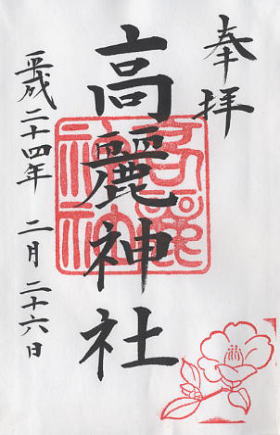 奉拝
高麗神社
高麗神社
平成二十四年 二月 二十六日